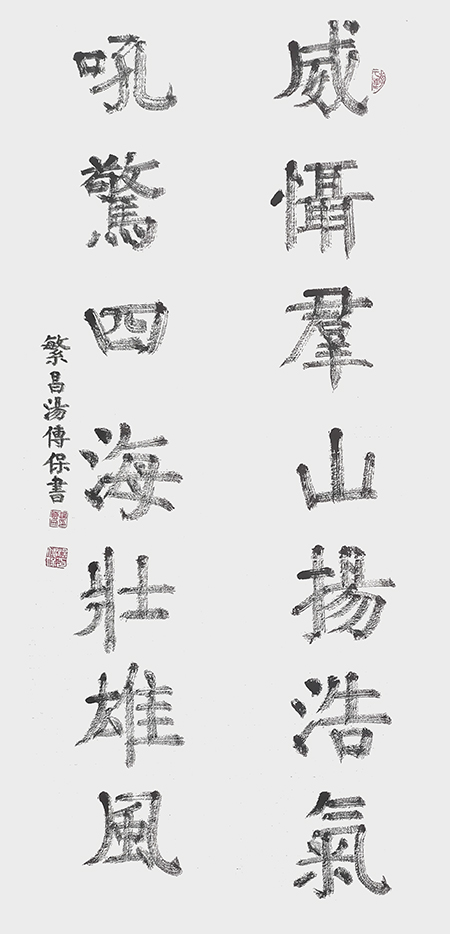 威懾羣山揚浩氣
吼驚四海壯雄風
繁昌湯傳保書